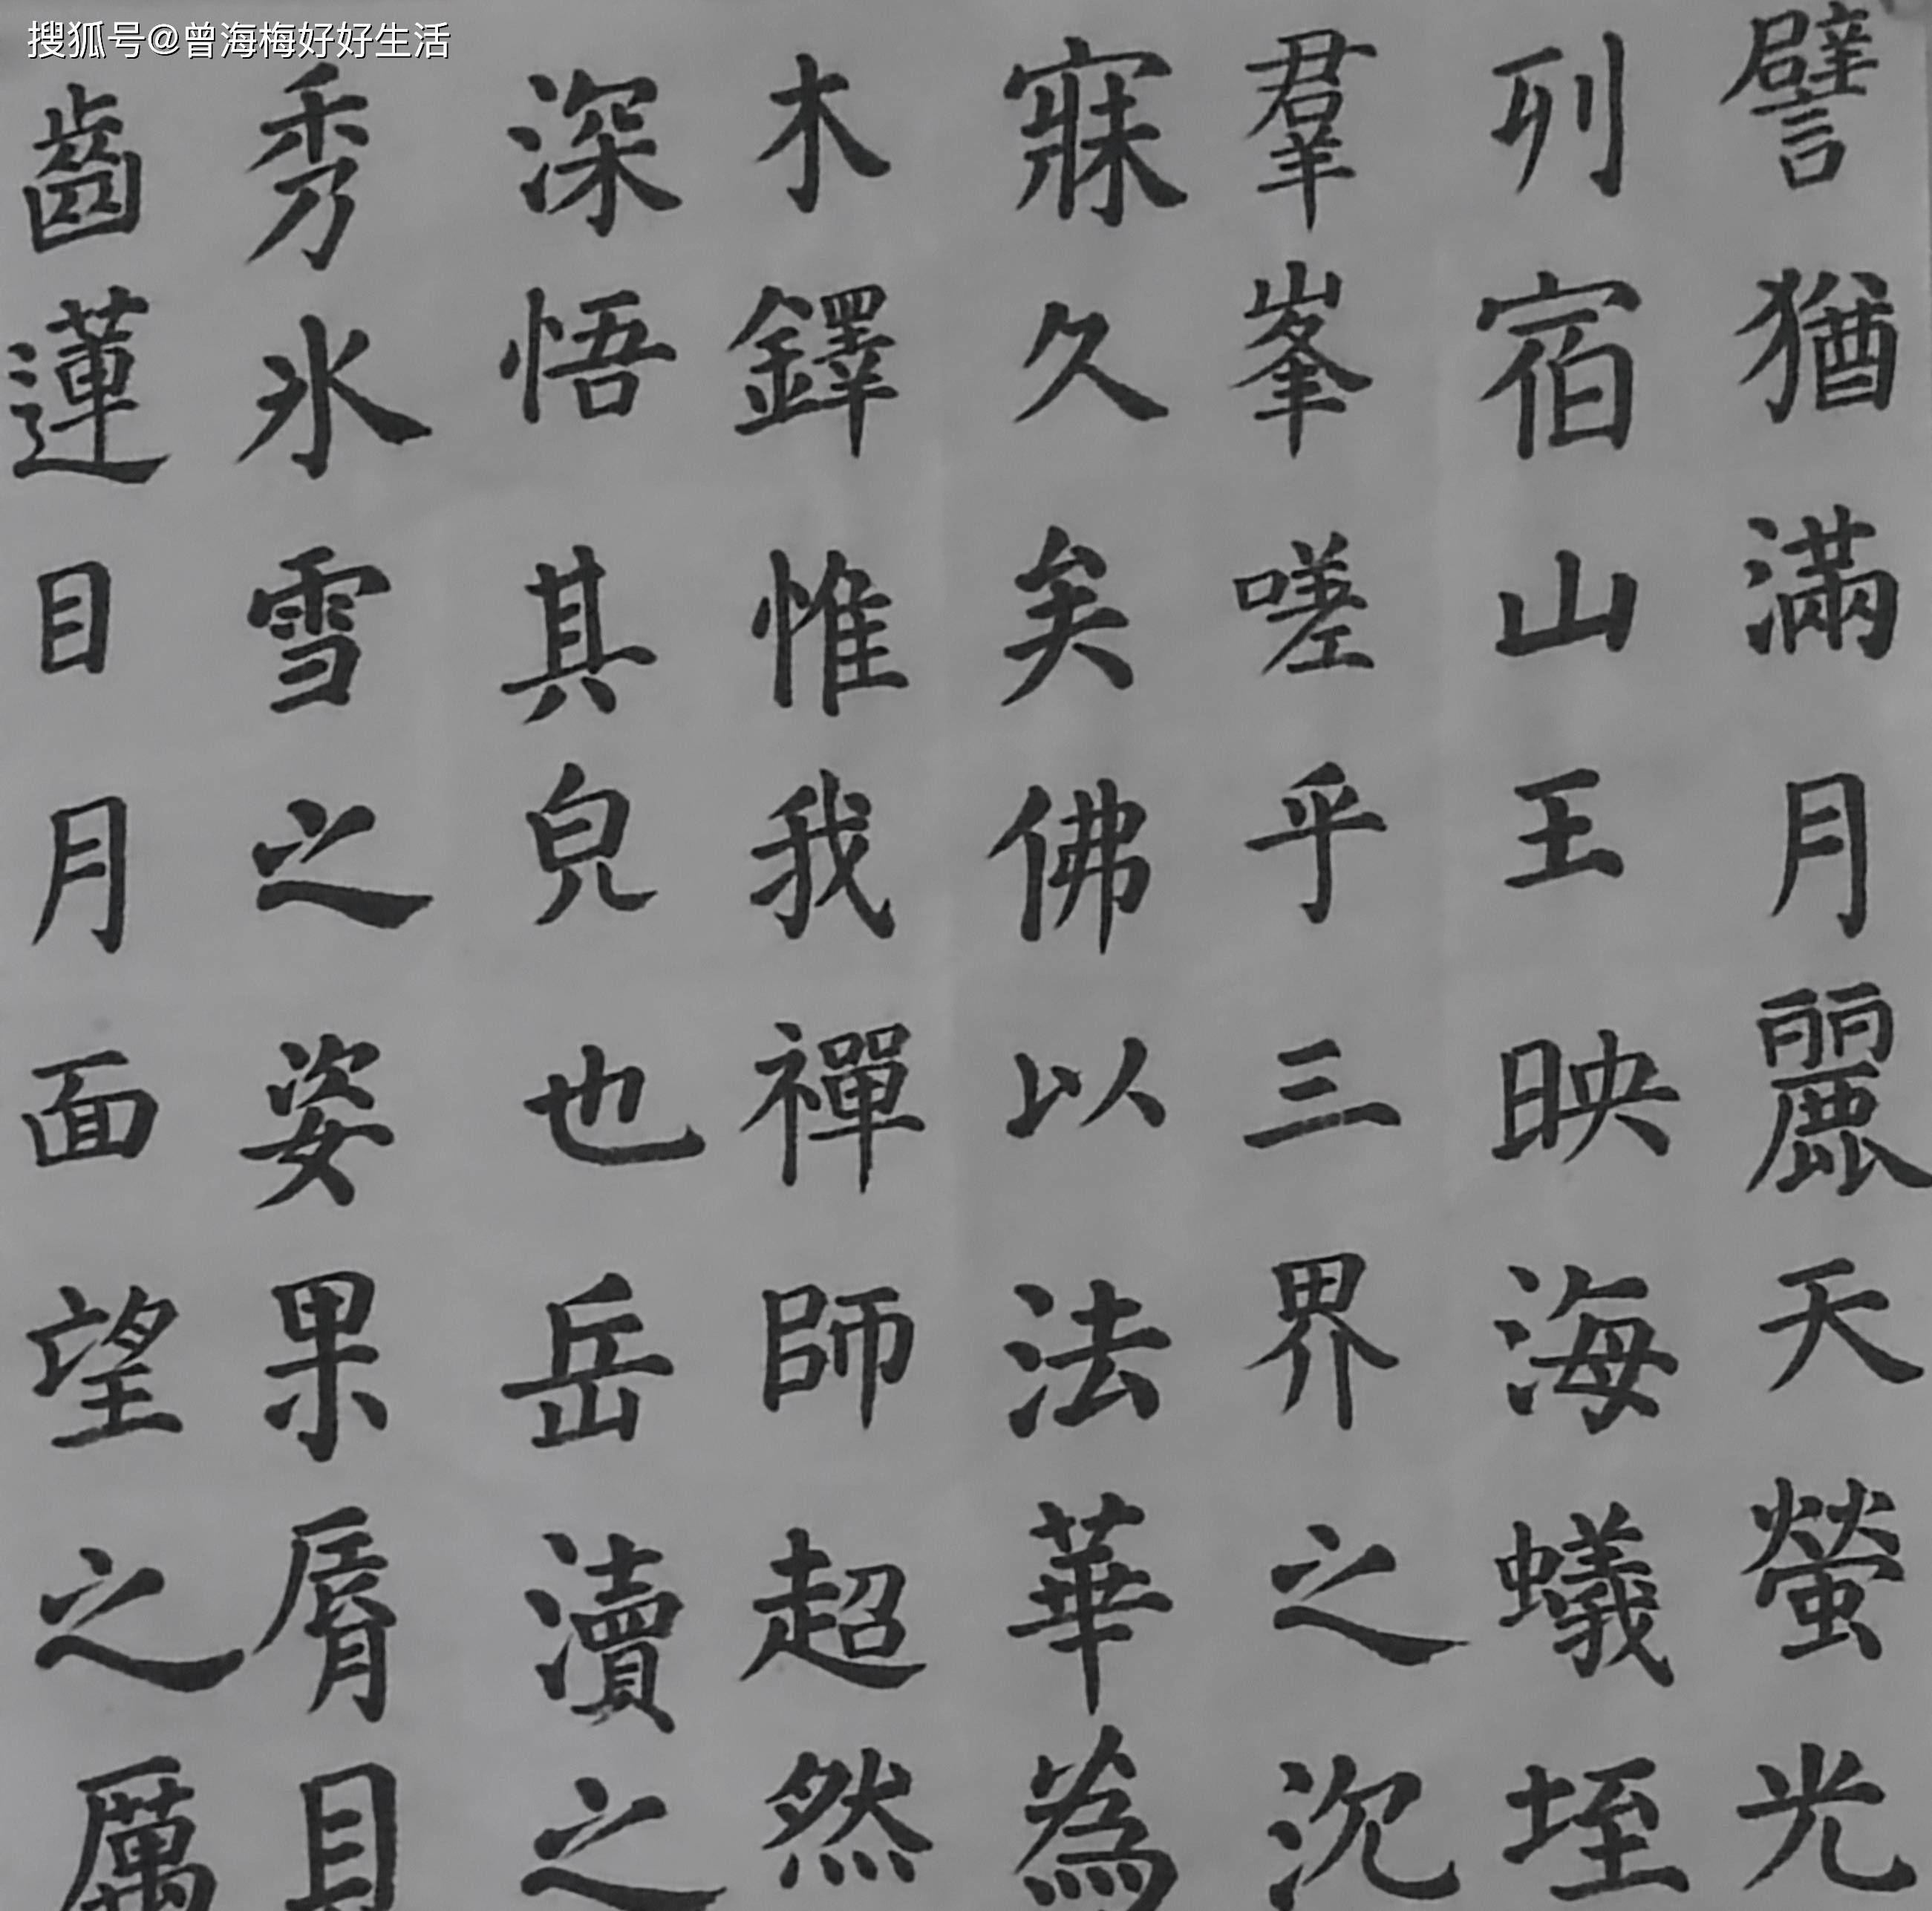 搜狐号@曾海梅好好生活
譬猶滿月麗天螢光
列宿山王映海蟻垤
羣峯嗟乎三界之沉
寐久矣佛以法華為
木鐸惟我禪師超然
深悟其皃也岳瀆之
秀氷雪之姿果脣貝
齒蓮目月面望之厲